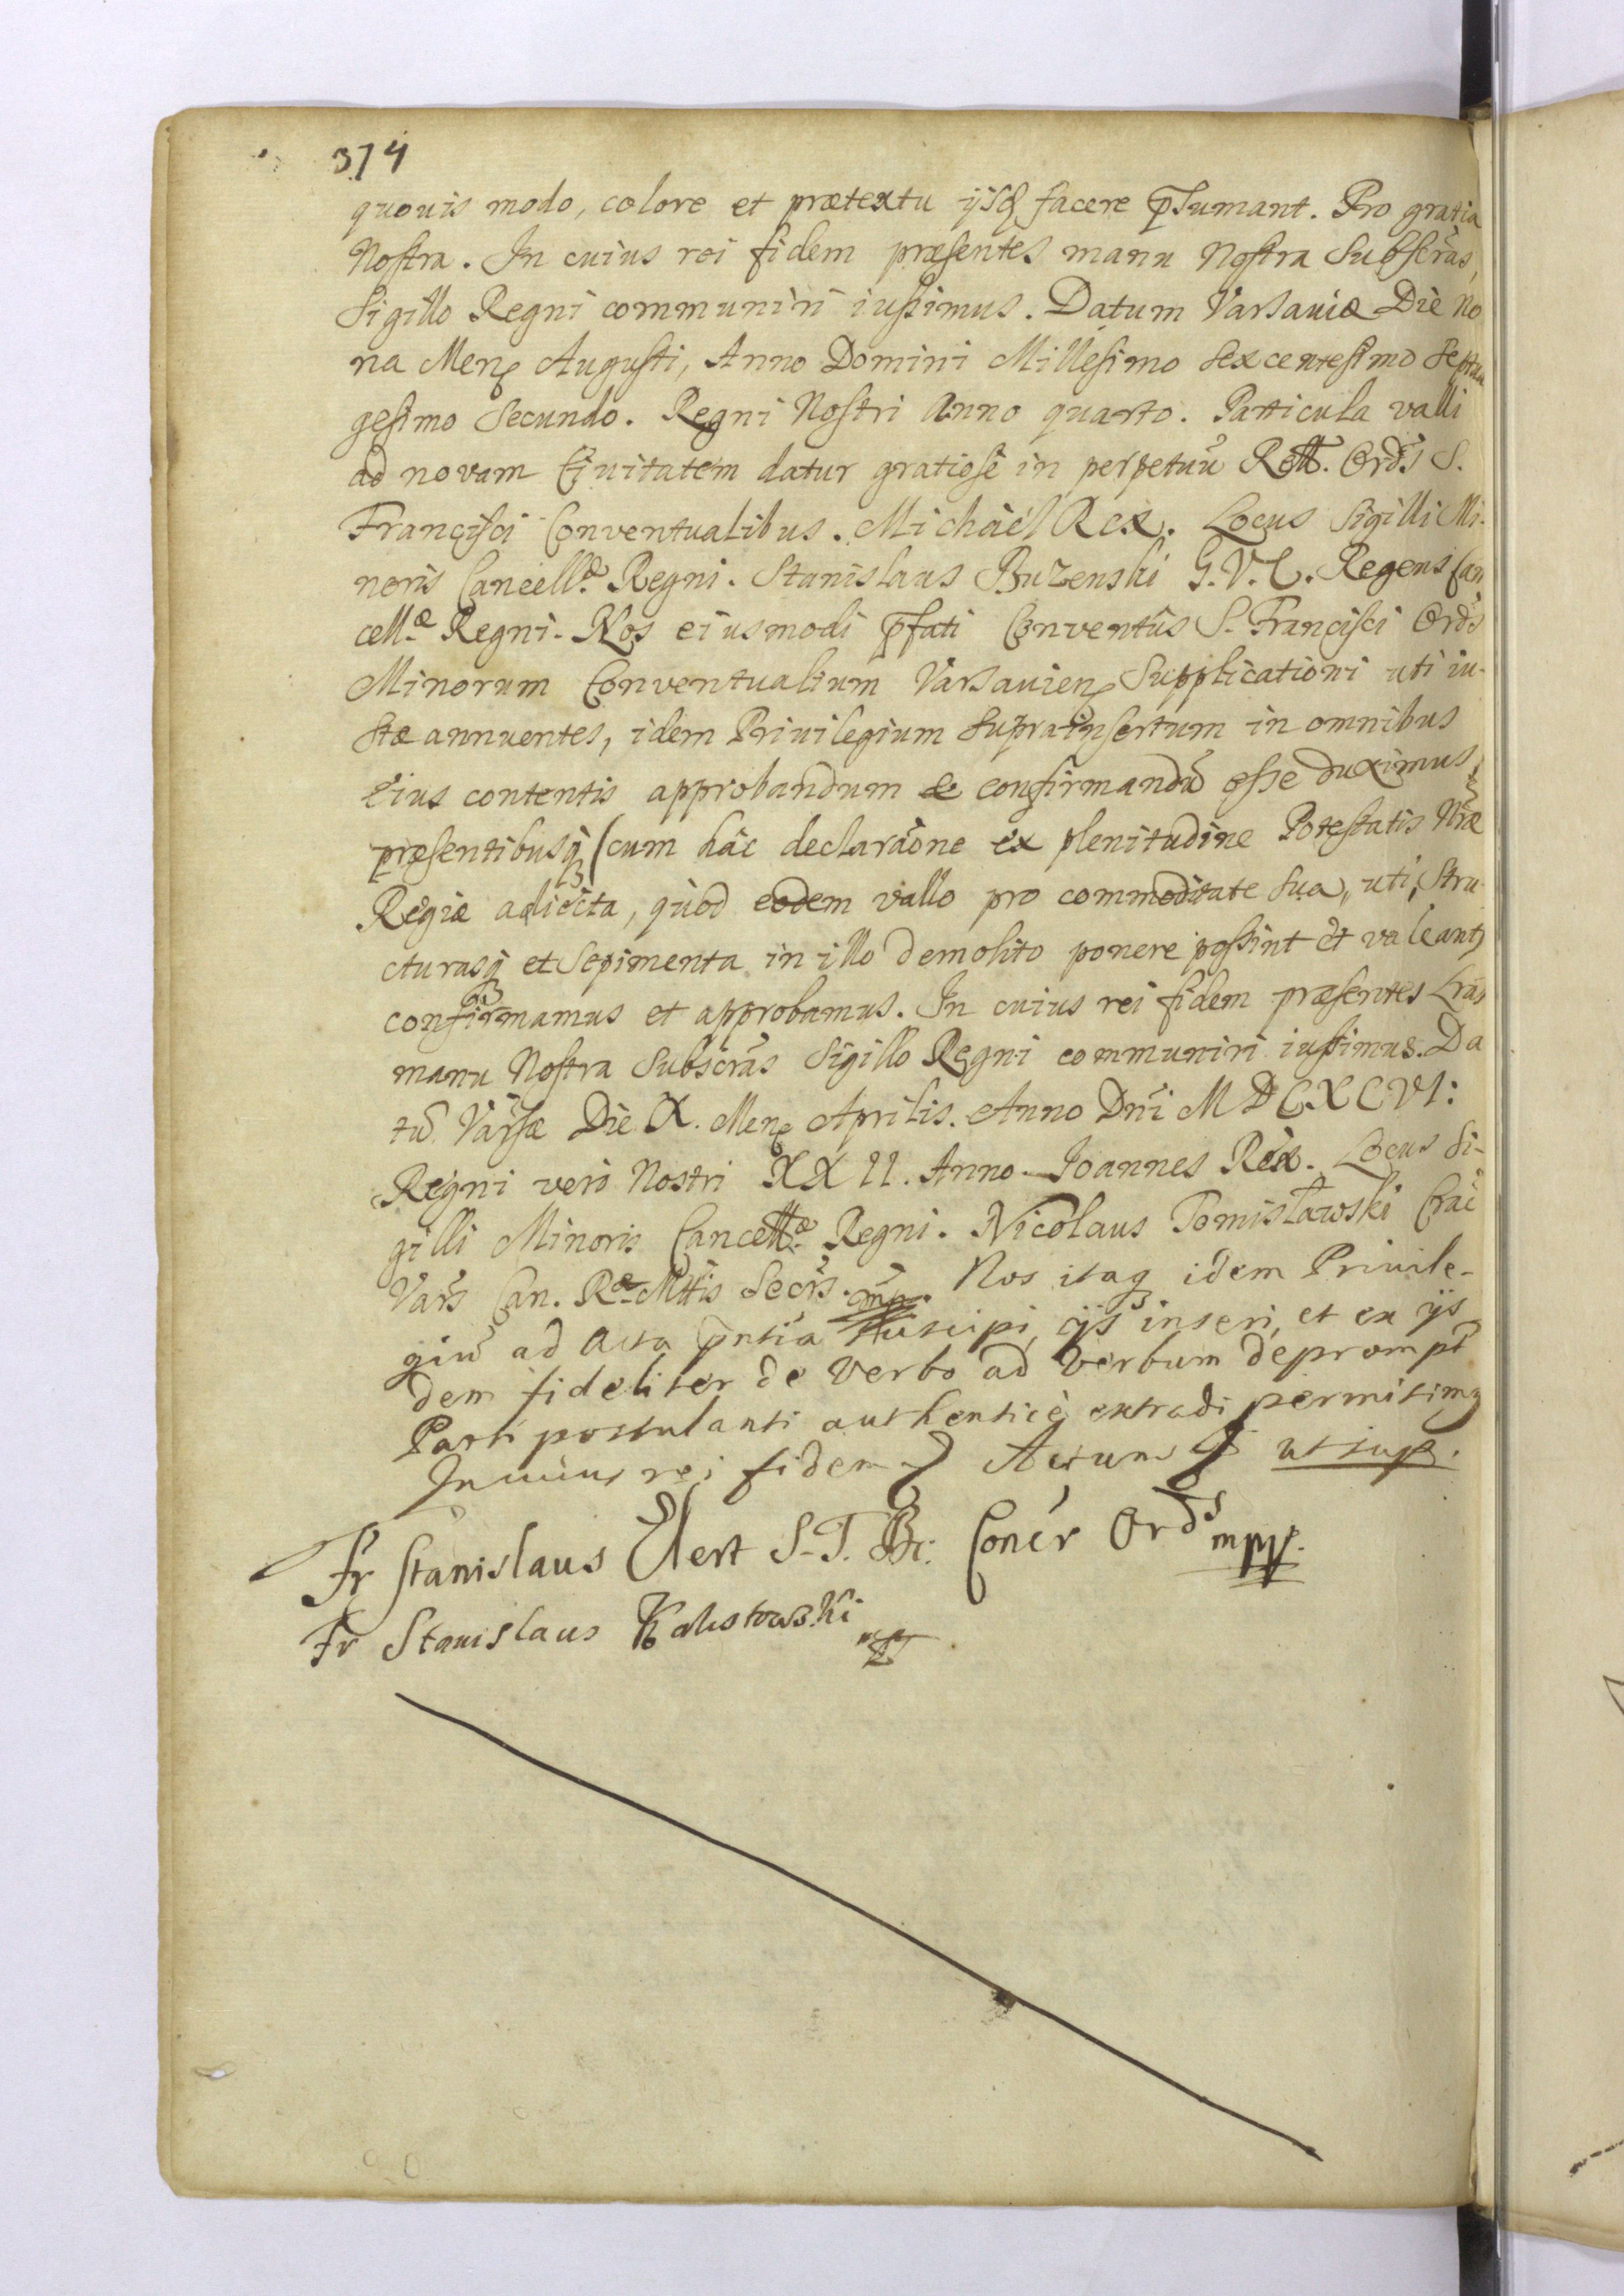 374
quouis modo, colore et prætextu ijsq facere p̄sumant. Pro gratia
Nostra. In cuius rei fidem præsentes manu Nostra Subscr̄as,
Sigillo Regni communiri iussimus. Datum Varsauiæ Die No
na Mens Augusti, Anno Domini Millesimo Sexcentesimo Septua
gesimo Secundo. Regni Nostri Anno quarto. Particula valli
ad novam Civitatem datur gratiosè in perpetuū Rell. Ord̄s S.
Francisci Conventualibus. Michaël Rex. Locus Sigilli Mi-
noris Cancell.æ Regni. Stanislaus Buzenski G.V.C. Regens Can
cell.æ Regni. Nos eiusmodi p̄fati Conventûs S. Francisci Ord̄s
Minorum Conventualium Varsauiens Supplicationi uti iu-
stæ annuentes, idem Priuilegium Suprainsertum in omnibus
Eius contentis approbandum & confirmandū esse duximus,
præsentibusq (cum hâc declara̅one ex plenitudine Potestatis Nr̄æ
Regiæ adiecta, quòd eodem vallo pro commoditate Sua, uti, Stru-
cturasq et Sepimenta in illo demolito ponere possint et valeant)
confirmamus et approbamus. In cuius rei fidem præsentes Lr̄as
manu Nostra Subscr̄as Sigillo Regni communiri iussimus. Da
tū Varsæ Die X. Mens Aprilis. Anno Dn̄i MDCXCVI:
Regni verò Nostri XXII. Anno. Joannes Rex. Locus Si-
gilli Minoris Cancell.æ Regni. Nicolaus Tomisławski Crac
Vars Can. R.æ Mttis Secrs. mp. Nos itaq idem Priuile-
giū ad Acta p̄ntia suscipi, ijs inseri, et ex ijs
dem fideliter de Verbo ad Verbum deprompt̄
Parti postulanti authenticè extradi permisimus
In cuius rei fidem Actum ut supr.
Fr Stanislaus Elert S.T. Conćr Ords mpp.
Fr Stanislaus